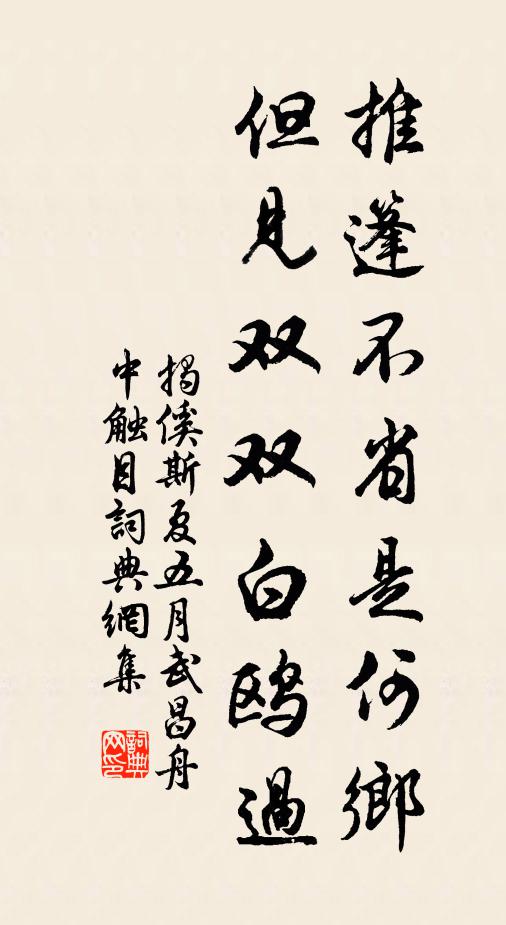 推篷不省是何鄉
但見双双白鸥過
揭傒斯夏五月武昌舟
中触目詞典網集
詞典
网印